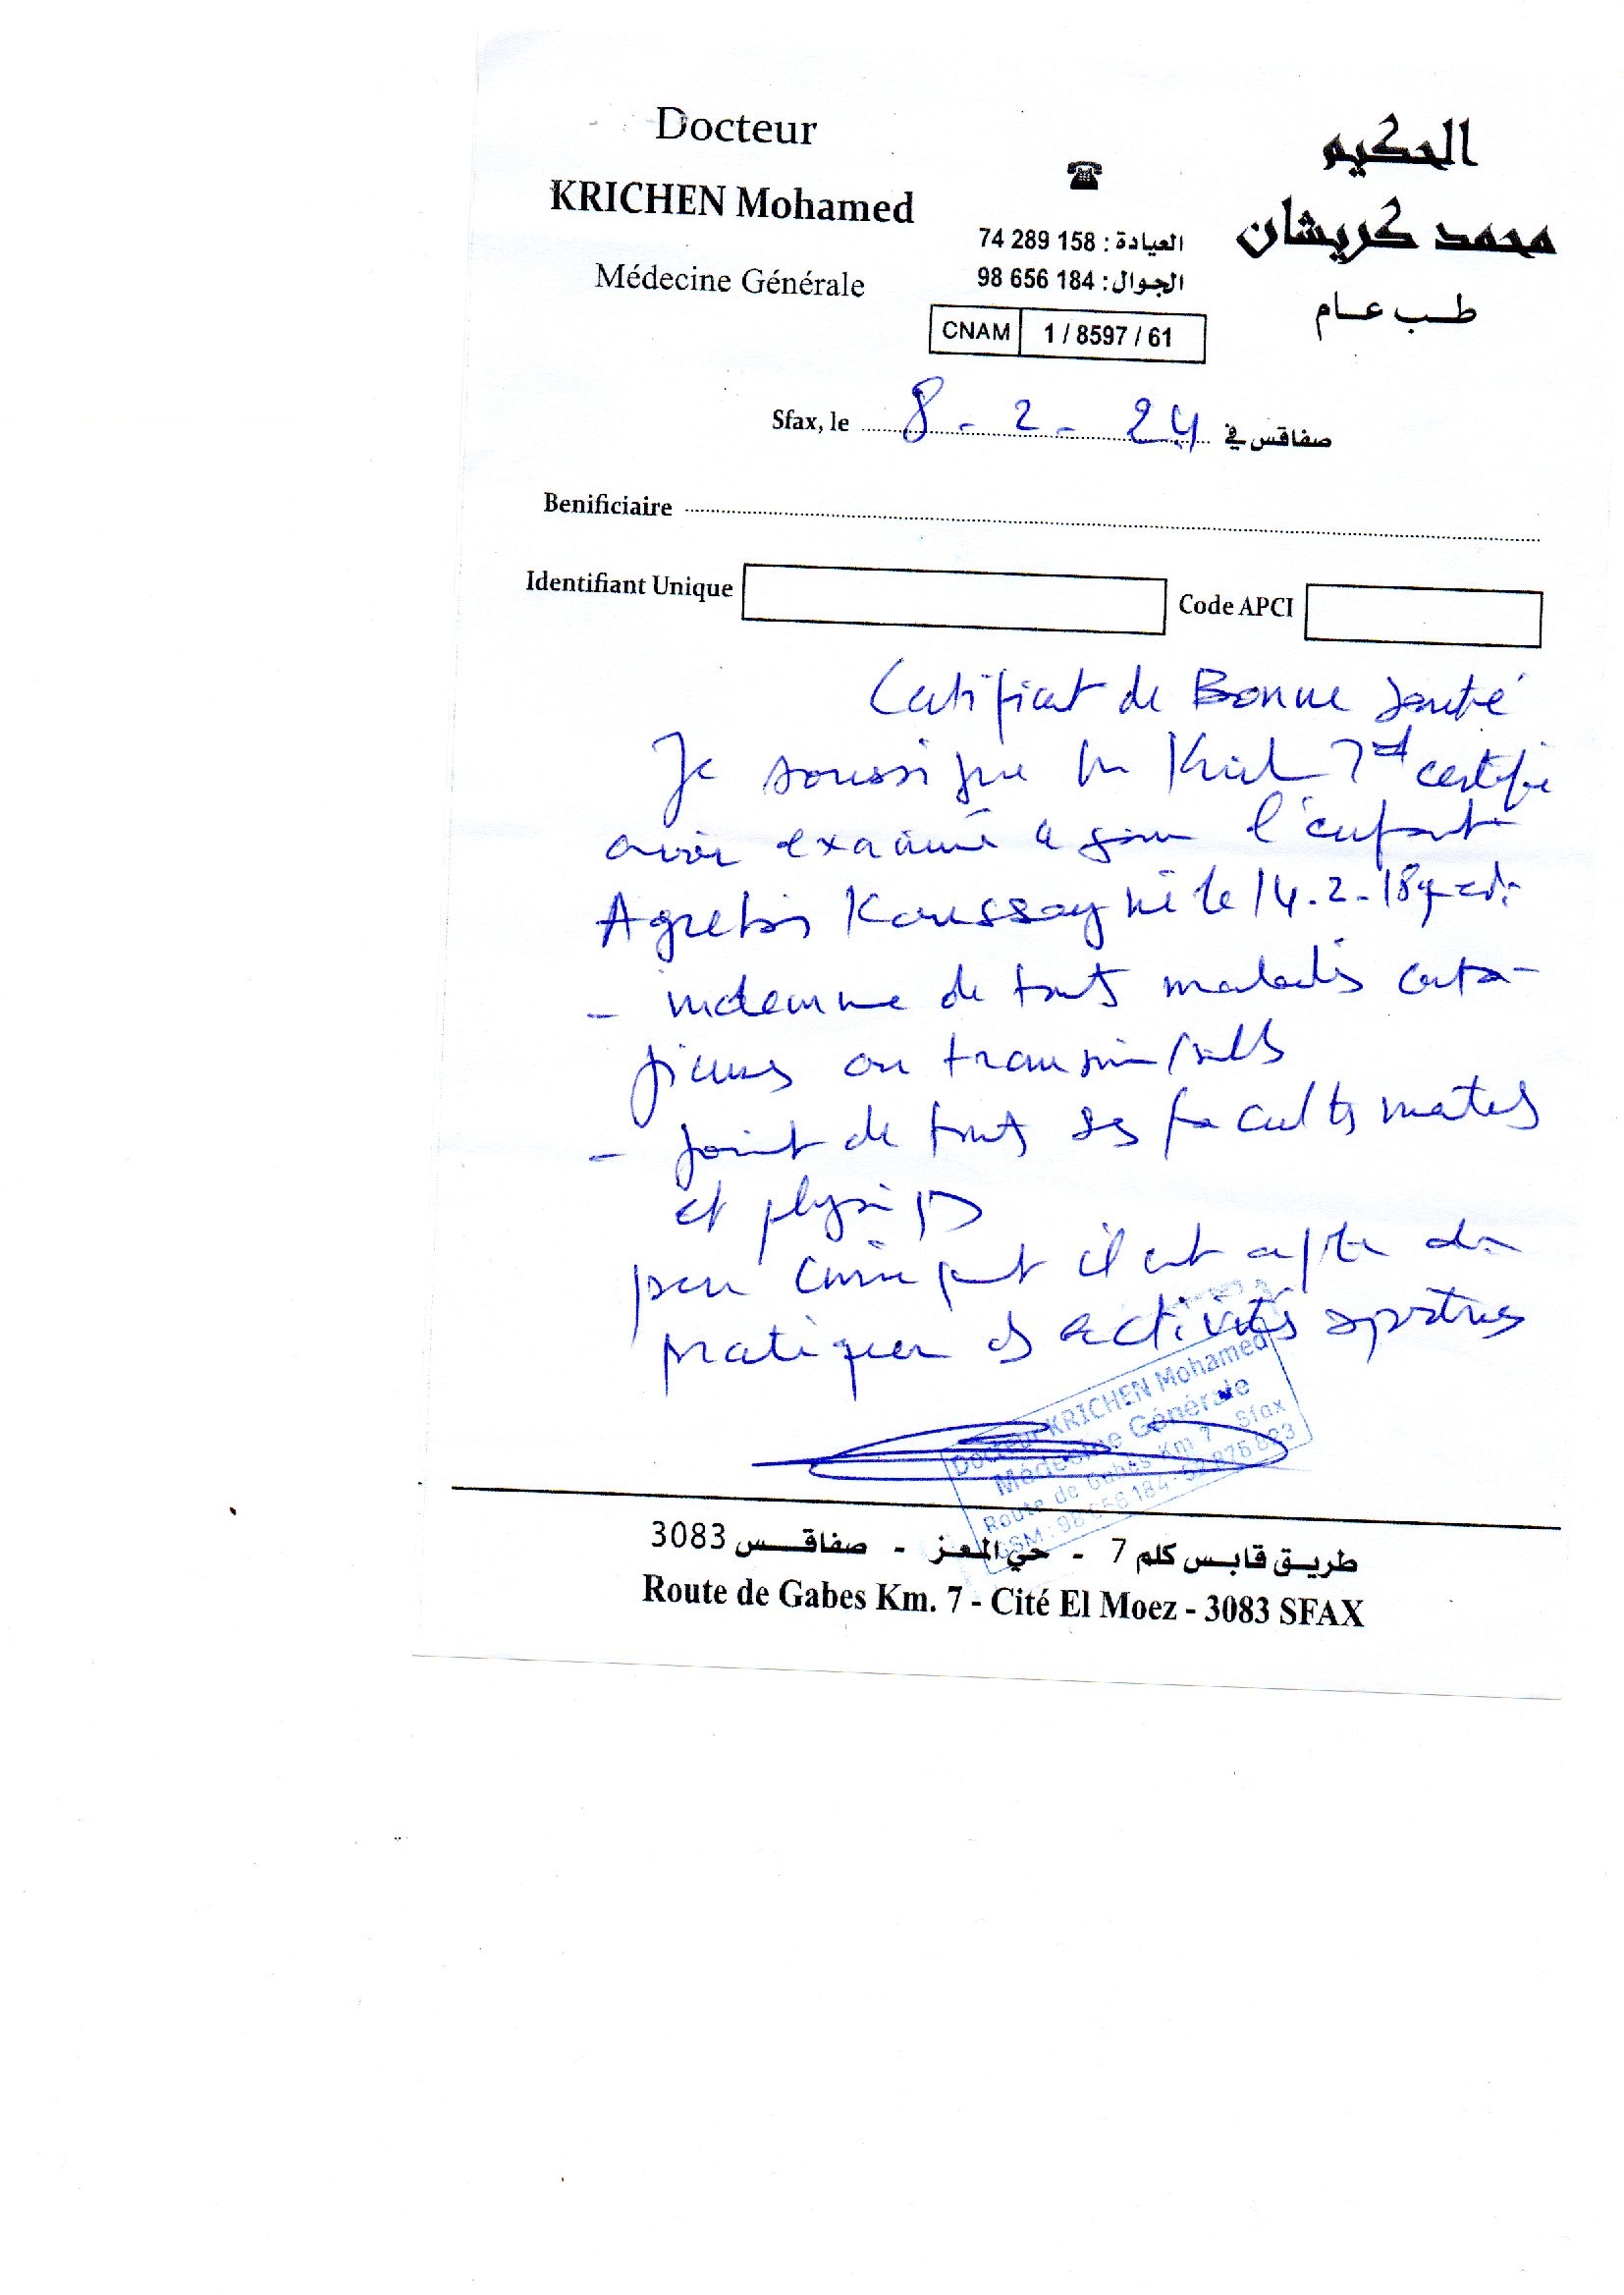 Docteur
KRICHEN Mohamed
Médecine Générale
العيادة : 158 289 74
الجوال : 184 656 98
CNAM 1 / 8597 / 61
الحكيم
محمد كريشان
طب عام
Sfax, le 8 - 2 - 24 صفاقس في
Benificiaire
Identifiant Unique Code APCI
Certificat de Bonne Santé
Je soussigné Dr certifie
avoir examiné l'enfant
Agrebi Koussay né le 14.2.18
- indemne de toutes maladies conta-
gieuses ou transmissibles
- jouit de toutes ses facultés mentales
et physiques
par conséquent il est apte de
pratiquer des activités sportives
Docteur KRICHEN Mohamed
Médecine Générale
Route de Gabès Km 7 - Sfax
GSM : 98 656 184
طريق قابس كلم 7 - حي المعز - صفاقس 3083
Route de Gabes Km. 7 - Cité El Moez - 3083 SFAX